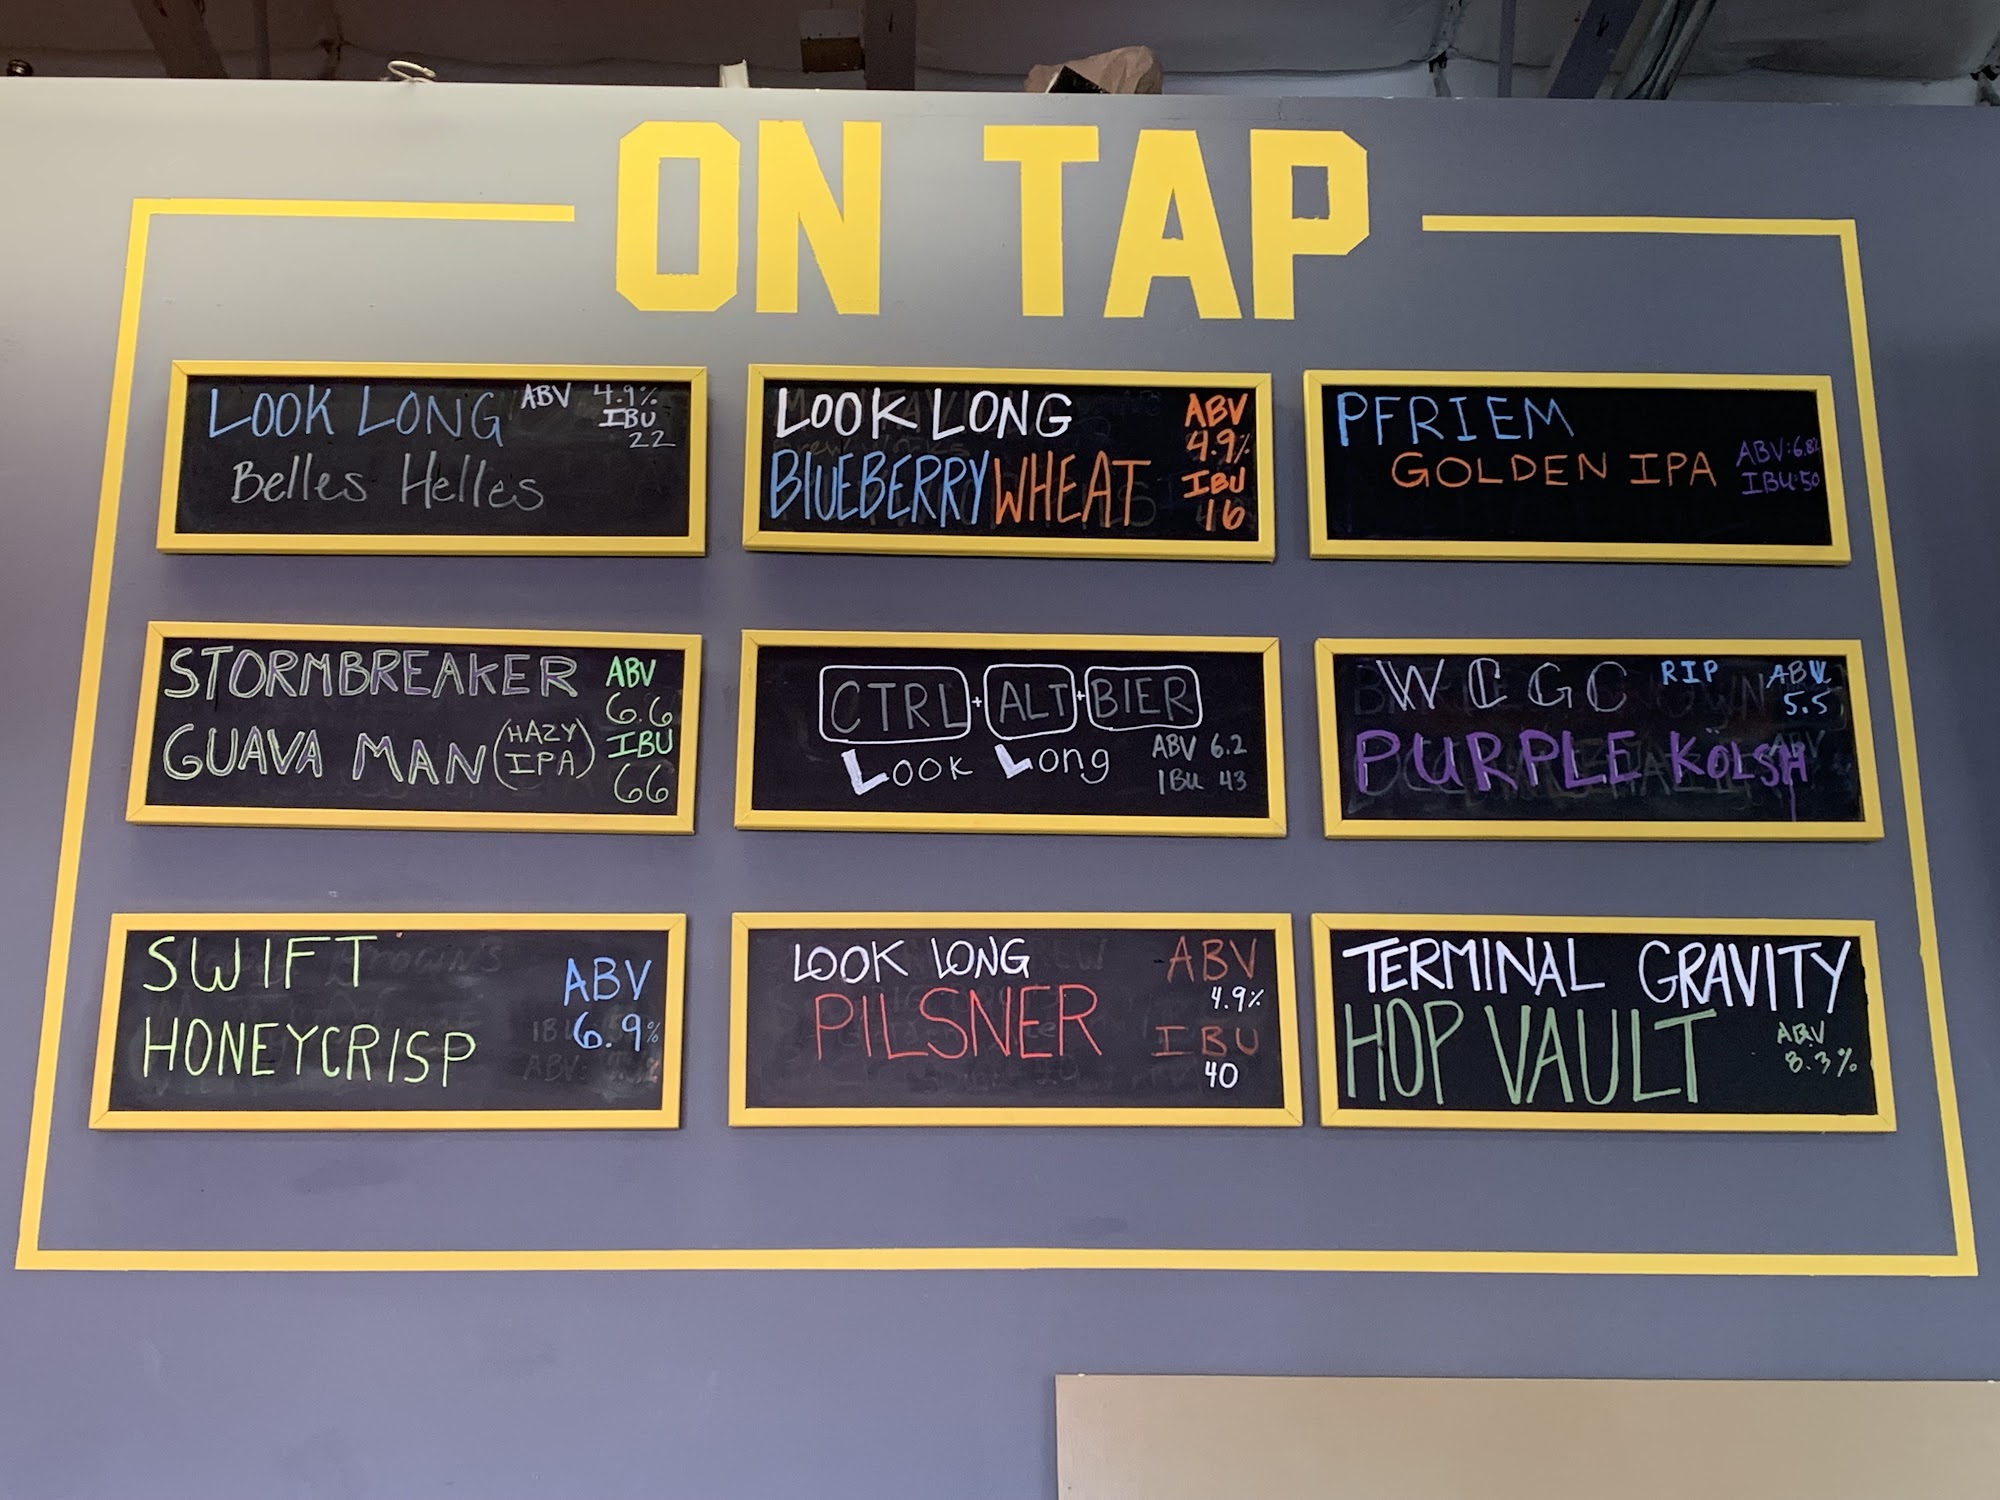 ON TAP
LOOK LONG ABV 4.9%
IBU
22
Belles Helles
LOOK LONG ABV
4.9%
BLUEBERRY WHEAT IBU
16
PFRIEM
GOLDEN IPA ABV:6.8%
IBU:50
STORMBREAKER ABV
6.6
GUAVA MAN (HAZY IPA) IBU
66
CTRL + ALT + BIER
LOOK LONG ABV 6.2
IBU 43
WCGC RIP ABV
5.5
PURPLE KÖLSH
SWIFT
ABV
HONEYCRISP 6.9%
LOOK LONG ABV
4.9%
PILSNER IBU
40
TERMINAL GRAVITY
HOP VAULT ABV
8.3%